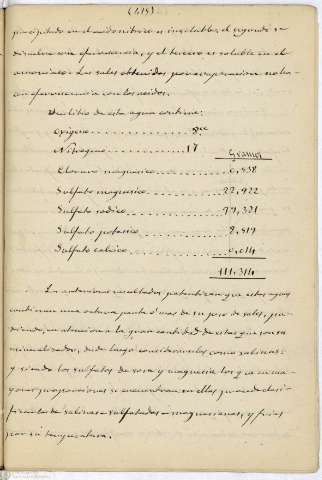 (415)
precipitado en el acido nitrico es insoluble; el segundo se
disuelve con efervescencia, y el tercero es soluble en el
amoniaco. Las sales obtenidas por evaporacion no ha-
cen efervescencia con los acidos.
Un litro de esta agua contiene:
Oxigeno ........ 8cc
Nitrogeno ........ 17
Gramos
Cloruro magnesico ........ 0,938
Sulfato magnesico ........ 22,922
Sulfato sodico ........
Sulfato potasico ........
Sulfato calcico ........ 0,014
111,314
Los anteriores resultados patentizan que estas aguas
contienen una octava parte o mas de su peso de sales, pu-
diendo, en atencion a la gran cantidad de estas que son su
mineralizador, desde luego considerarlas como salinas:
y siendo los sulfatos de sosa y magnesia los que en ma-
yores proporciones se encuentran en ellas procede clasi-
ficarlas de salinas sulfatadas magnesianas, y frias
por su temperatura.